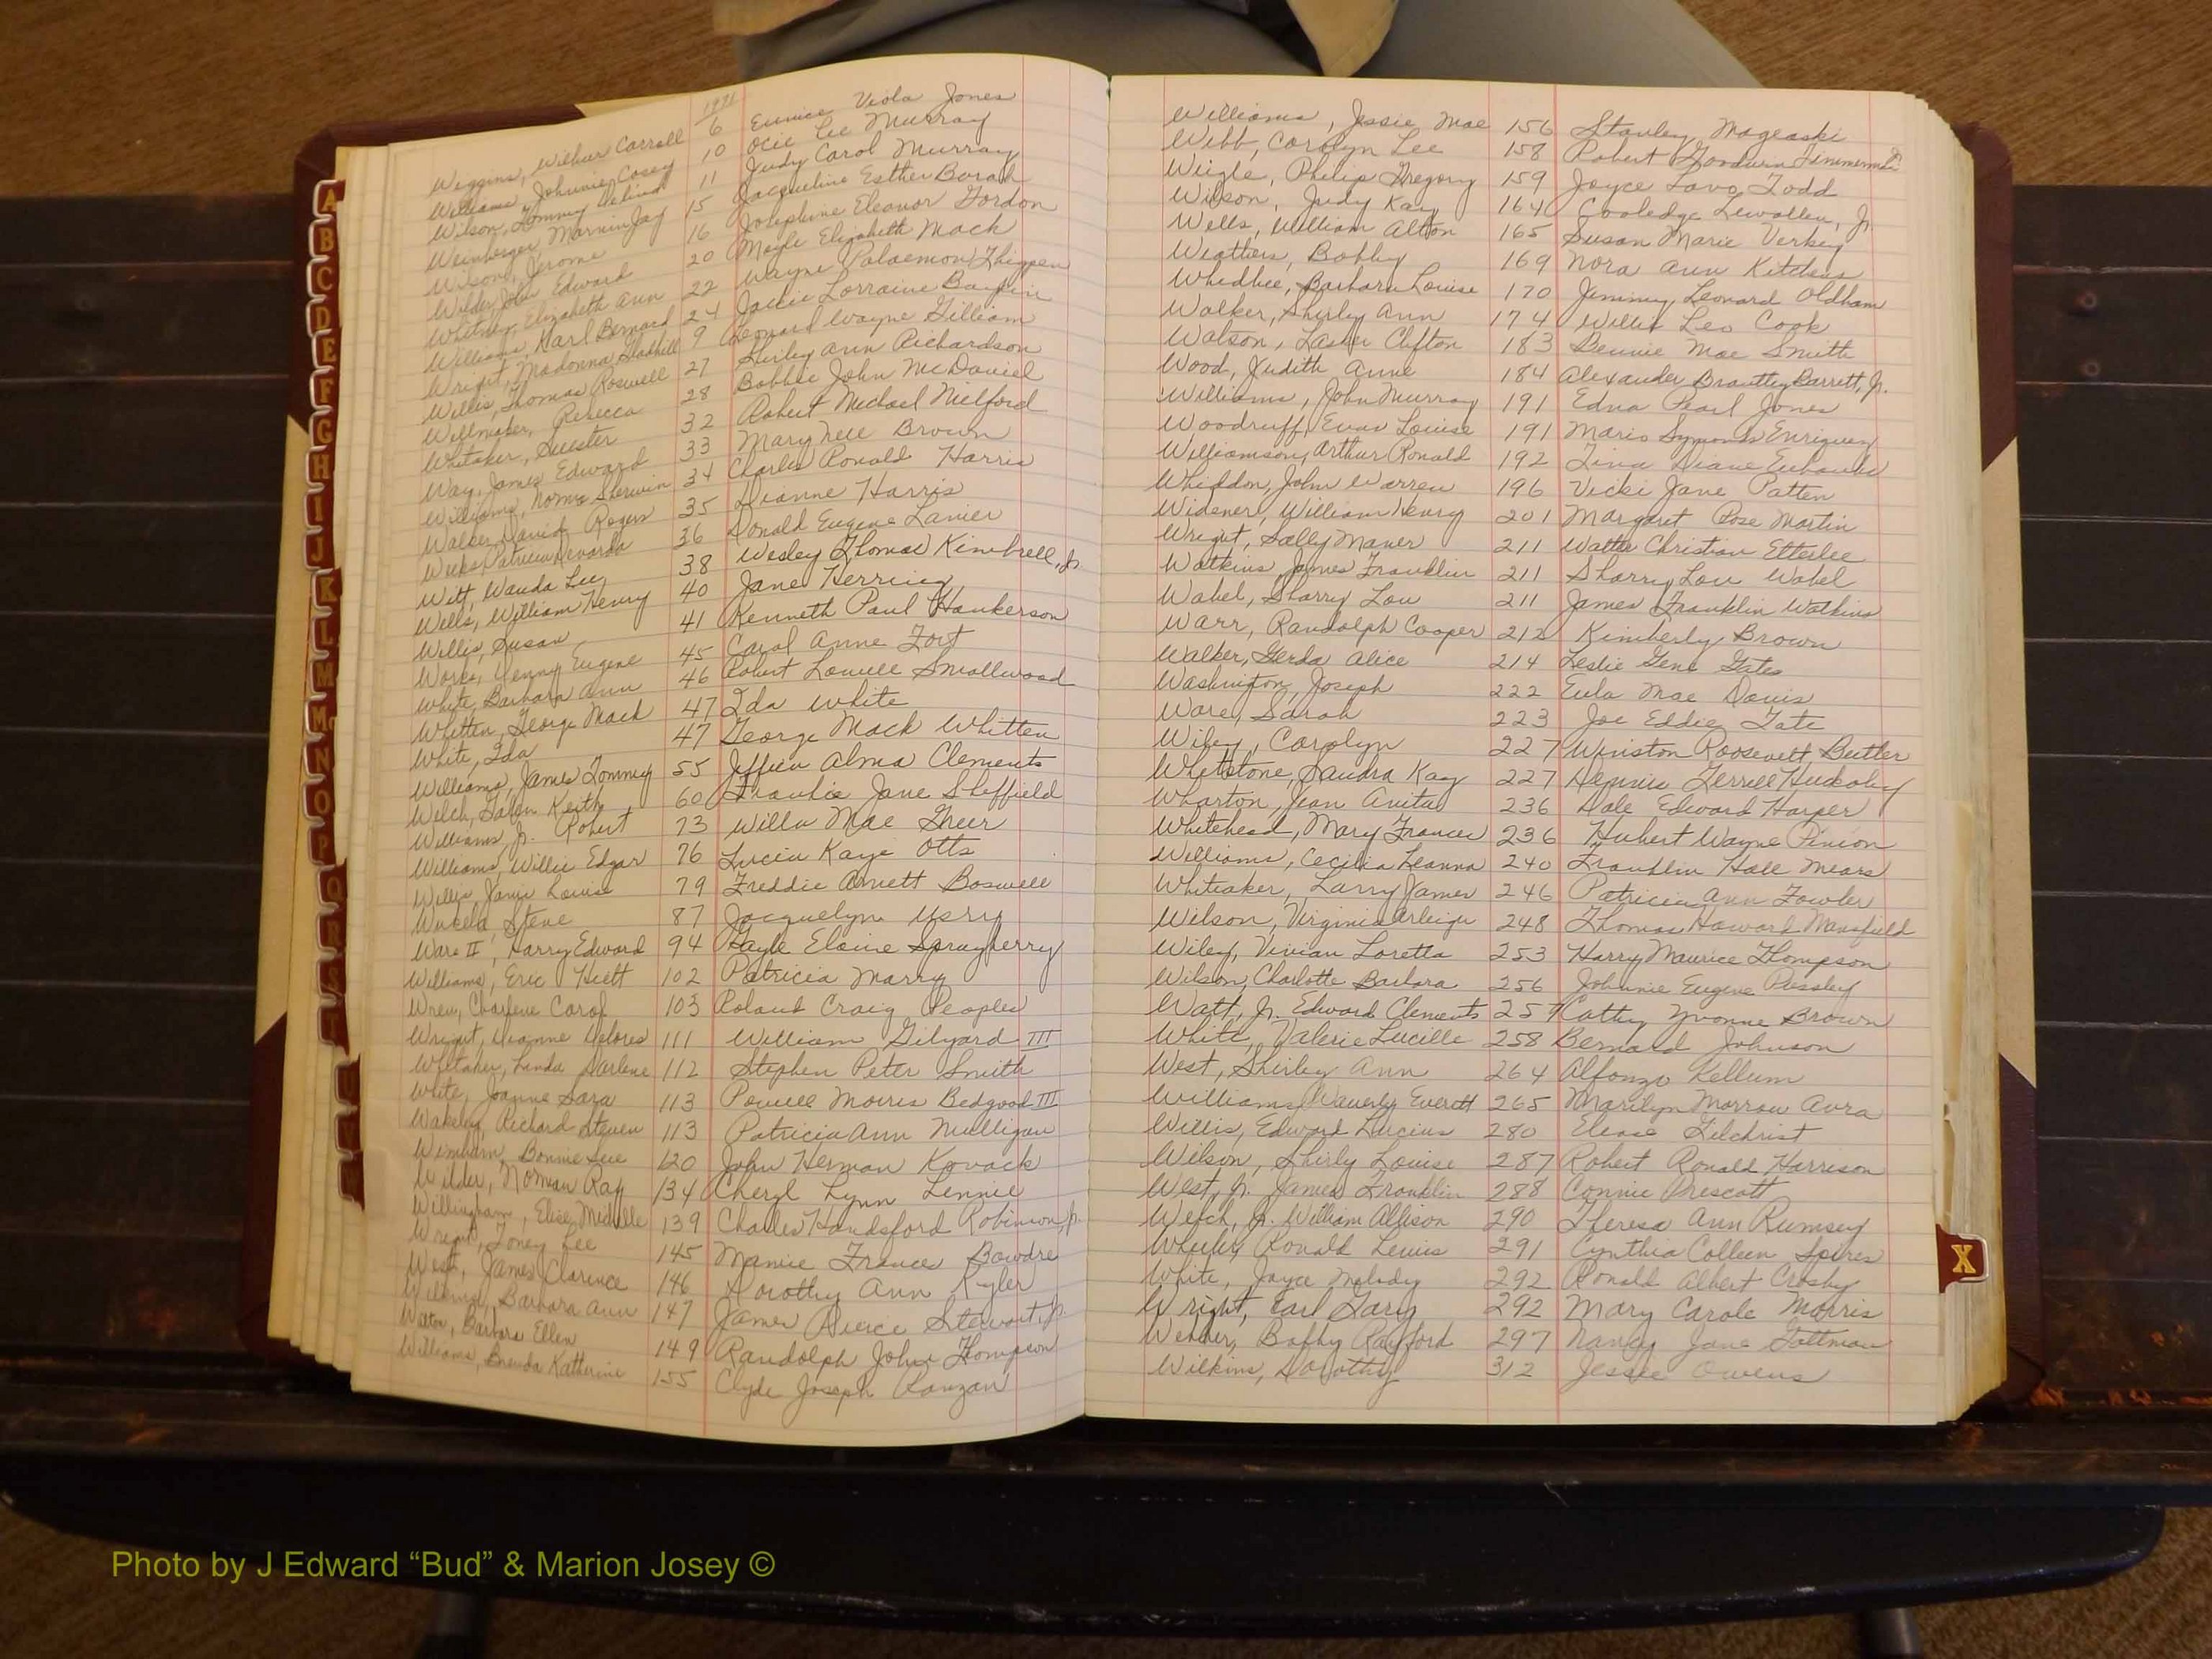 1971
Wiggins, Wilbur Carroll 6 Eunice Viola Jones
Williams, Johnnie Casey 10 Ocie Lee Murray
Wilson, Tommy 11 Judy Carol Murray
Weinberger, Marvin Jay 15 Jacqueline Esther Borah
Wilson, Jerome 16 Josephine Eleanor Gordon
Wilder, John Edward 20 Elizabeth Mack
Whitney, Elizabeth Ann 22 Wayne Palaemon Thigpen
Williams, Karl Bernard 24 Lorraine
Wright, Madonna 9 Leonard Wayne Gilliam
Willis, Thomas Roswell 27 Shirley Ann Richardson
Rebecca 28 Bobbie John McDaniel
Whitaker, 32 Robert Michael Milford
Way, James Edward 33 Mary Nell Brown
Williams, Norma 34 Charles Ronald Harris
Walker, David Rogers 35 Dianne Harris
36 Donald Eugene Lanier
Witt, Wanda Lee 38 Wesley Thomas Kimbrell, Jr.
Wells, William Henry 40 Jane Herring
Willis, Susan 41 Kenneth Paul Hankerson
Eugene 45 Carol Anne Fort
White, Barbara Ann 46 Robert Lowell Smallwood
Whitten, George Mack 47 Ida White
White, Ida 47 George Mack Whitten
Williams, James Tommy 55 Alma Clements
Welch, Keith 60 Frankie Jane Sheffield
Williams, Jr. Robert 73 Willa Mae Greer
Williams, Willie Edgar 76 Lucia Kaye Otts
Willis, Janie Louise 79 Freddie Arnett Boswell
Steve 87 Jacquelyn Usry
Ware II, Harry Edward 94 Gayle Elaine Sprayberry
Williams, Eric Hiett 102 Patricia Marry
Wren, Charlene Carol 103 Roland Craig Peoples
Wright, Dianne Delores 111 William Gilyard III
Whitaker, Linda Darlene 112 Stephen Peter Smith
White, Joanne Sara 113 Powell Morris Bedgood III
Wakely, Richard Steven 113 Patricia Ann Mulligan
Bonnie Sue 120 John Herman Kovack
Wilder, Norman Ray 134 Cheryl Lynn Lennie
Willingham, Elise Michelle 139 Charles Handsford Robinson, Jr.
Wright, Toney Lee 145 Mamie France Bowdre
West, James Clarence 146 Dorothy Ann Kyler
Barbara Ann 147 James Pierce Stewart, Jr.
Barbara Ellen 149 Randolph John Thompson
Williams, Brenda Katherine 155 Clyde Joseph
Williams, Jessie Mae 156 Stanley
Webb, Carolyn Lee 158 Robert
Weigle, Philip Gregory 159 Joyce Todd
Wilson, Judy Kay 164 Cooledge Lewallen, Jr.
Wells, William Alton 165 Susan Marie Verkey
Weathers, Bobby 169 Nora Ann Kitchens
Whidbee, Barbara Louise 170 Jimmy Leonard Oldham
Walker, Shirley Ann 174 Willie Leo Cook
Watson, Clifton 183 Bennie Mae Smith
Wood, Judith Anne 184 Alexander Brantley Barrett, Jr.
Williams, John Murray 191 Edna Pearl Jones
Woodruff, Evan Louise 191 Mario Enriquez
Williamson, Arthur Ronald 192 Tina Diane Eubanks
Whiddon, John Warren 196 Vicki Jane Patten
Widener, William Henry 201 Margaret Rose Martin
Wright, Sally Maner 211 Walter Christian Etterlee
Watkins, James Franklin 211 Sharry Lou Wabel
Wabel, Sharry Lou 211 James Franklin Watkins
Warr, Randolph Cooper 212 Kimberly Brown
Walker, Gerda Alice 214 Leslie Gene Gates
Washington, Joseph 222 Eula Mae Davis
Ware, Sarah 223 Joe Eddie Tate
Wiley, Carolyn 227 Winston Roosevelt Butler
Whetstone, Sandra Kay 227 Dennis Terrell Huckaby
Wharton, Jean Anita 236 Dale Edward Harper
Whitehead, Mary Frances 236 Hubert Wayne Pinion
Williams, Cecilia Leanna 240 Franklin Hall Mears
Whiteaker, Larry James 246 Patricia Ann Fowler
Wilson, Virginia Arleigu 248 Thomas Howard Mansfield
Wiley, Vivian Loretta 253 Harry Maurice Thompson
Wilson, Charlotte Barbara 256 Johnnie Eugene Pressley
Watt, Jr. Edward Clements 257 Cathy Yvonne Brown
White, Valerie Lucille 258 Bernard Johnson
West, Shirley Ann 264 Alfonzo Kellum
Williams, Waverly Everett 265 Marilyn Morrow Avra
Willis, Edward Lucius 280 Elease Gilchrist
Wilson, Shirly Louise 287 Robert Ronald Harrison
West, Jr. James Franklin 288 Connie Prescott
Welch, Jr. William Allison 290 Theresa Ann Rumsey
Ronald Lewis 291 Cynthia Colleen Spires
White, Joyce Melody 292 Ronald Albert Crosby
Wright, Earl Gary 292 Mary Carole Morris
Bobby Rayford 297 Nancy Jane
Wilkins, Dorothy 312 Jessie Owens
A
B
C
D
E
F
G
H
I
J
K
L
M
Mc
N
O
P
Q
R
S
T
U
X
Photo by J Edward “Bud” & Marion Josey ©